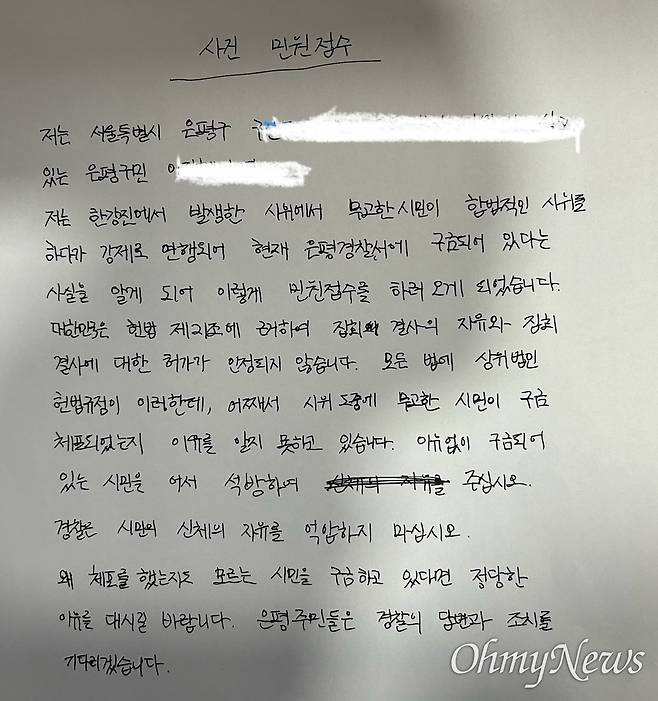 사건 민원접수
저는 서울특별시 은평구
있는 은평구민
저는 한강진에서 발생한 시위에서 무고한 시민이 합법적인 시위를
하다가 강제로 연행되어 현재 은평경찰서에 구금되어 있다는
사실을 알게 되어 이렇게 민원접수를 하러 오게 되었습니다.
대한민국은 헌법 제21조에 근거하여 집회와 결사의 자유와 집회
결사에 대한 허가가 인정되지 않습니다. 모든 법에 상위법인
헌법규정이 이러한데, 어째서 시위 도중에 무고한 시민이 구금
체포되었는지 이유를 알지 못하고 있습니다. 이유없이 구금되어
있는 시민을 어서 석방하여 주십시오.
경찰은 시민의 신체의 자유를 억압하지 마십시오.
왜 체포를 했는지도 모르는 시민을 구금하고 있다면 정당한
이유를 대시길 바랍니다. 은평주민들은 경찰의 답변과 조치를
기다리겠습니다.
OhmyNews